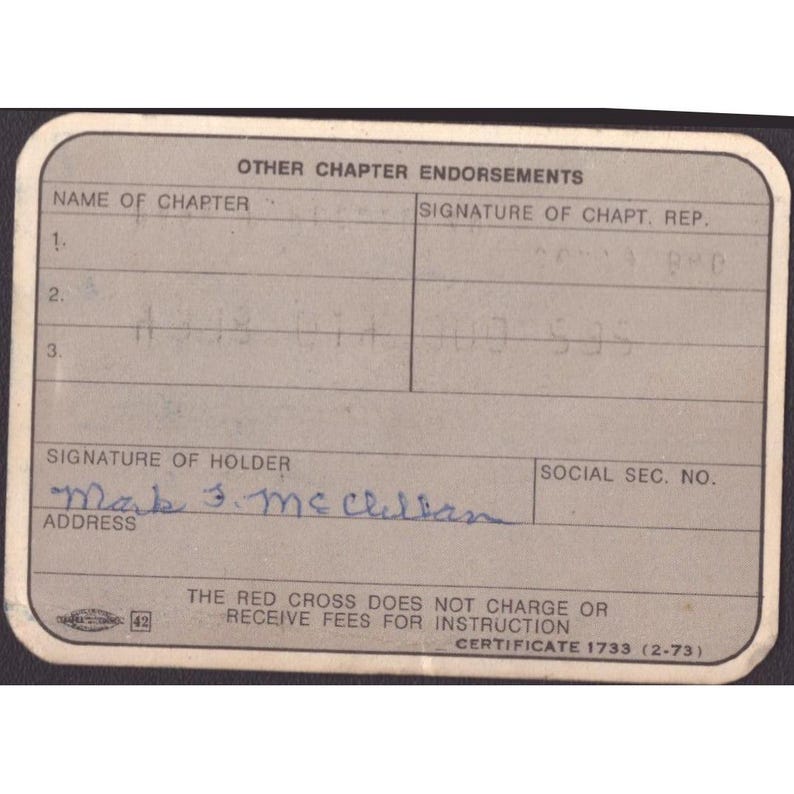 OTHER CHAPTER ENDORSEMENTS
NAME OF CHAPTER
SIGNATURE OF CHAPT. REP.
1.
2.
3.
SIGNATURE OF HOLDER
SOCIAL SEC. NO.
Mark F. McClellan
ADDRESS
THE RED CROSS DOES NOT CHARGE OR
RECEIVE FEES FOR INSTRUCTION
42
CERTIFICATE 1733 (2-73)